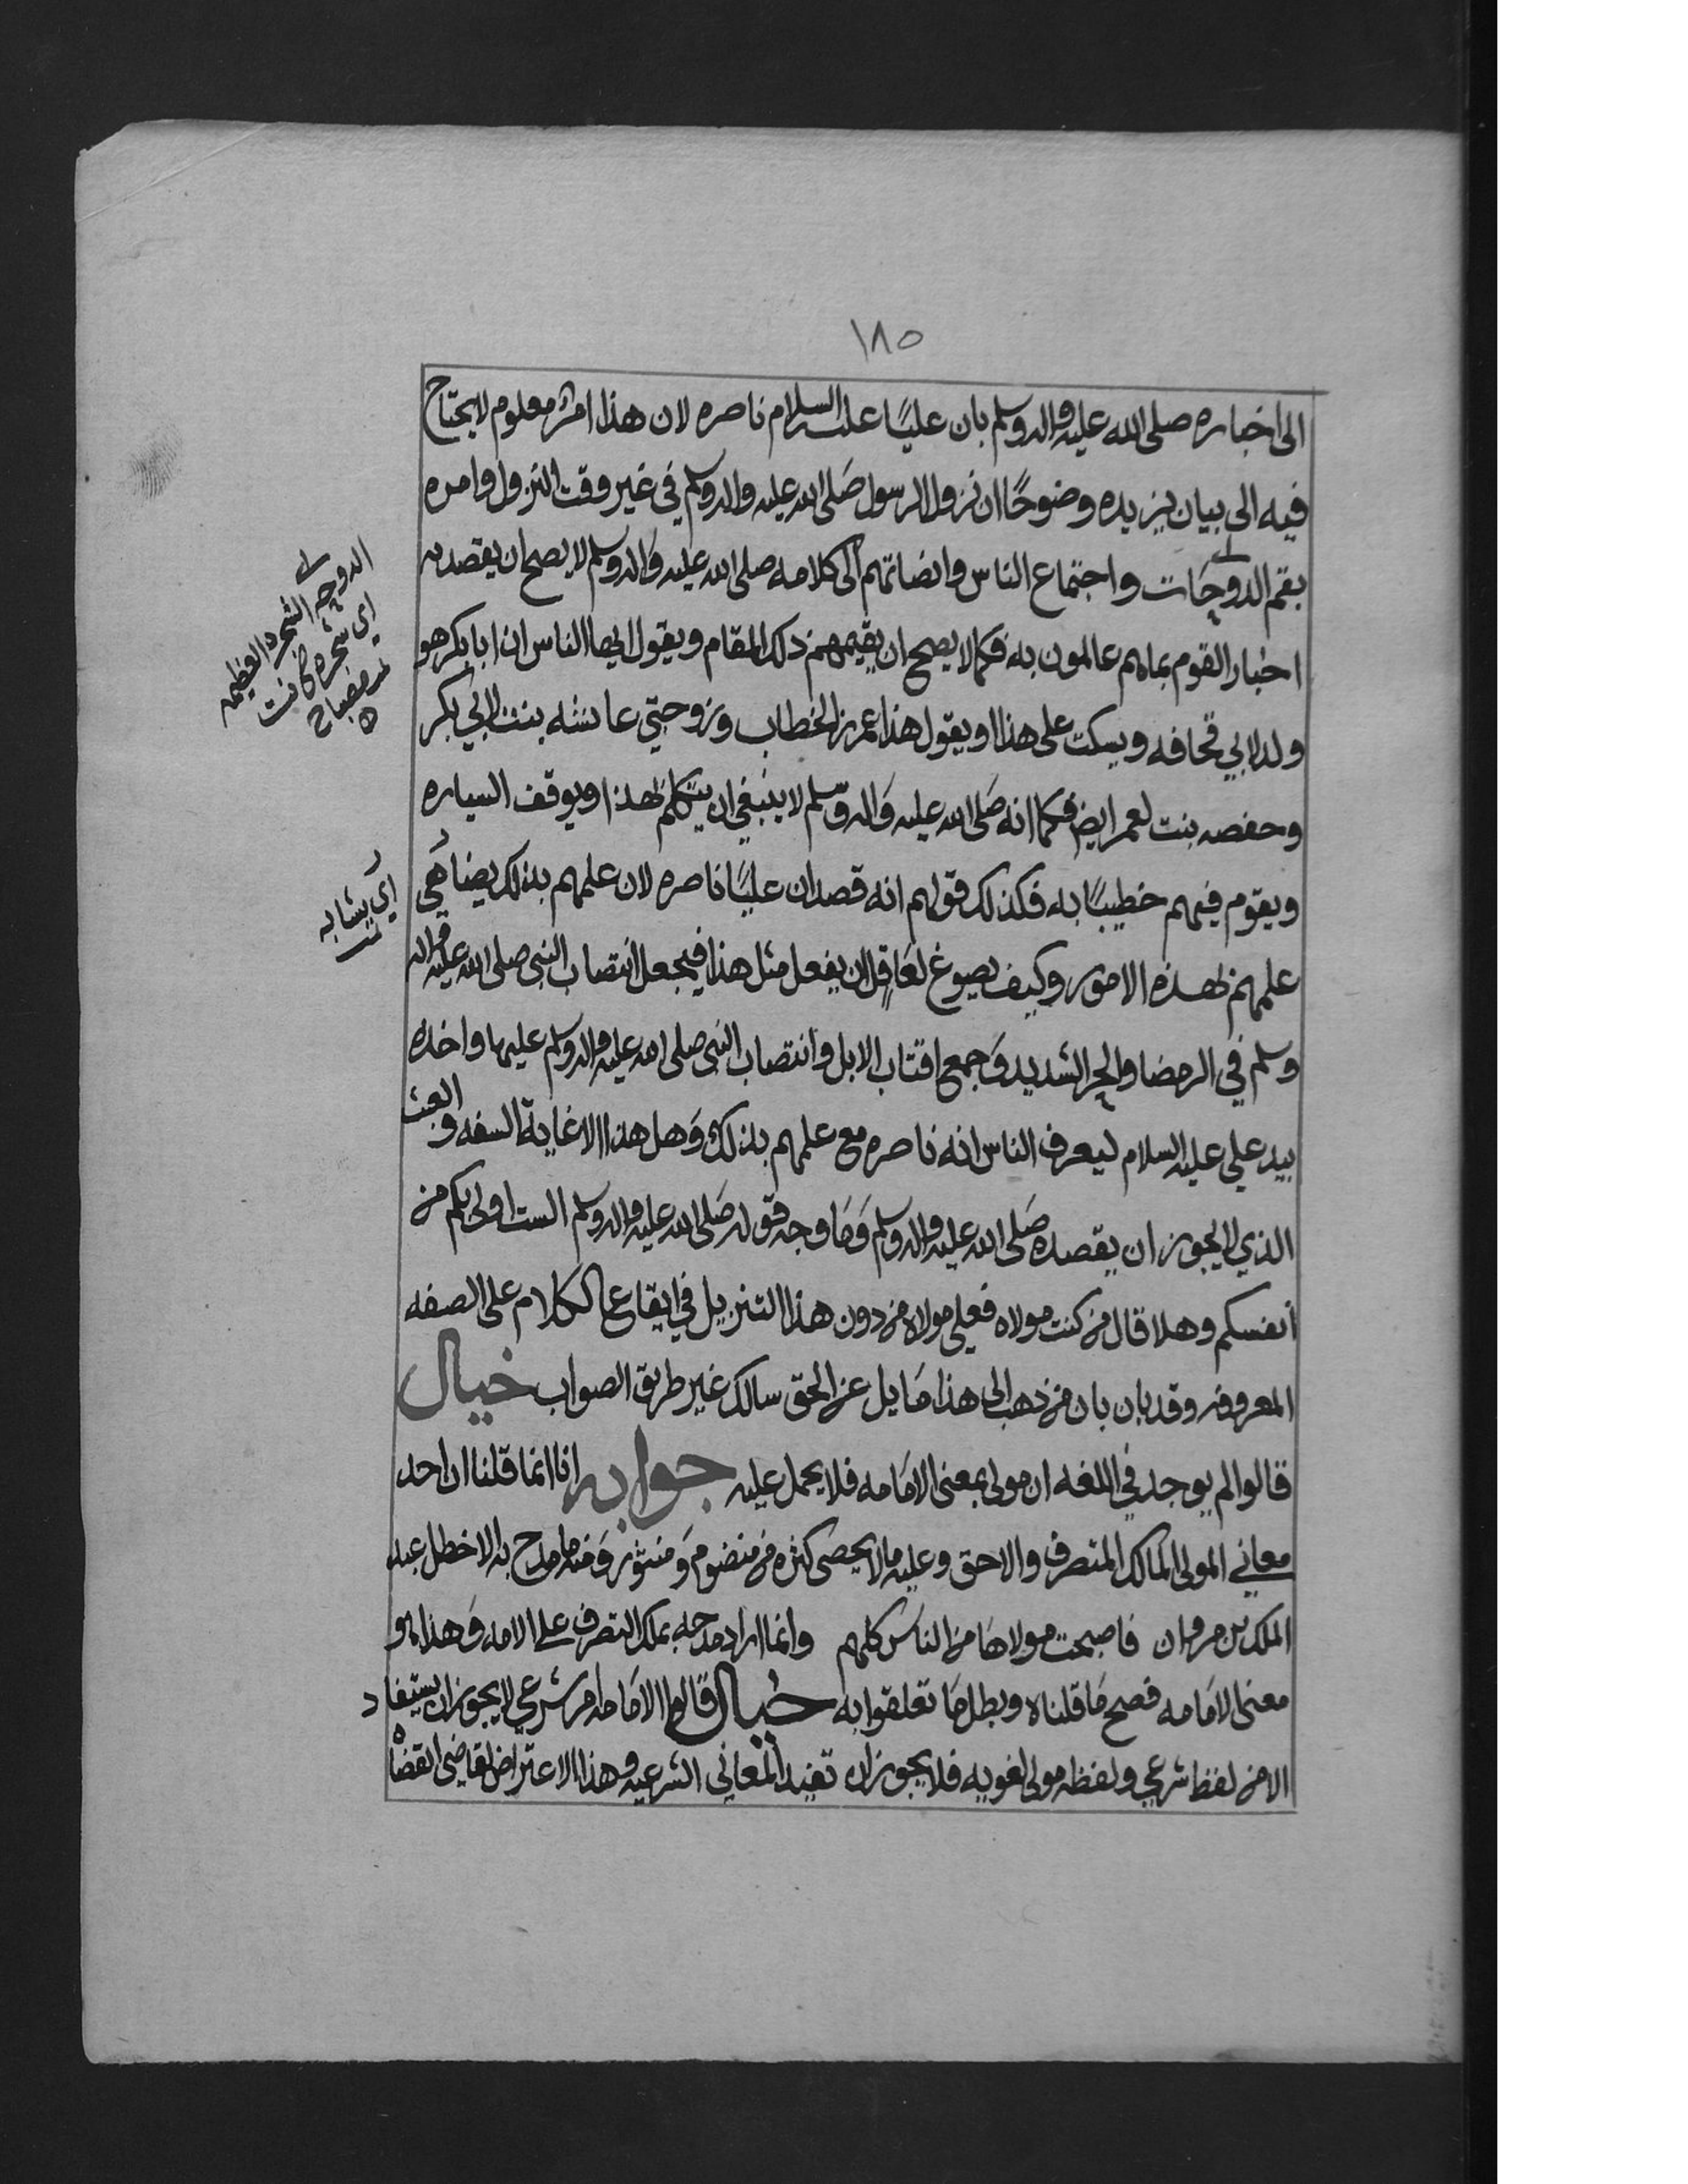 ١٨٥
الى اخباره صلى الله عليه واله وسلم بان عليًا عليه السلام ناصره لان هذا امرٌ معلوم لا يحتاج
فيه الى بيان يزيده وضوحًا ان نزول الرسول صَلى الله عليه واله وسلم في غير وقت النزول وامره
بقم الدوحَات واجتماع الناس وانصاتهم الى كلامه صلى الله عليه وَاله وسلم لا يصح ان يقصد به
اخبار القوم بما هم عالمون به فكما لا يصح ان يقيمهم ذلك المقام ويقول ايها الناس ان ابا بكر هو
ولد لابي قحافه ويسكت على هذا او يقول هذا عمر بن الخطاب وزوجتي عائشه بنت لابي بكر
وحفصه بنت لعمر ايض فكما انه صَلى الله عليه وَاله وسّلم لا ينبغي ان يتكلم بهذا ويوقف السياره
ويقوم فيهم خطيبًا به فكذلك قولهم انه قصد ان عليًا ناصره لان علمهم بذلك يضاهَي
علمهم بهذه الامور وكيف يصوغ لعَاقل ان يفعل مثل هذا فيجعل انتصاب النبي صلى الله عليه واله
وسلم في الرمضا والحر الشديد وَجمع اقتاب الابل وانتصاب النبي صلى الله عليه واله وسلم عليها واخذه
بيد علي عليه السلام ليعرف الناس انه ناصره مع علمهم بذلك وَهل هذا الا غاية السفه والعبث
الذي لا يجوز ان يقصده صَلى الله عليه واله وسلم وَمَا وجه قوله صَلى الله عليه واله وسلم الست اولى بكم من
أنفسكم وهلا قال من كنت مولاه فعلي مولاه من دون هذا التنزيل في ايقاع الكلام على الصفه
المعروفه وقد بان بان من ذهب الى هذا مَايل عن الحق سالك غير طريق الصواب خيال
قالوا لم يوجد في اللغه ان مولى بمعنى الامَامه فلا يحمل عليه جوابه انا انما قلنا ان احد
معاني المولى المالك المتصرف والاحق وعليه ما لا يحصى كثره من منضوم وَمنثور وَمنه ما مدح به الاخطل عبد
الملك بن مروان فاصبحت مولاهَا من الناس كلهم وانما اراد مدحه بملك التصرف على الامه وَهذا هو
معنى الامَامه فصح مَا قلناه وبطل مَا تعلقوا به خيال قالوا الامَامه امر شرعي لا يجوز ان يستفاد
الا من لفظ شرعي ولفظه مولى لغويه فلا يجوز ان تفيد المعاني الشرعيه وهذا الاعتراض لقاضي القضاه
الدوحه الشجره العظيمه
اي شجره كانت
مصباح
اي يشابه